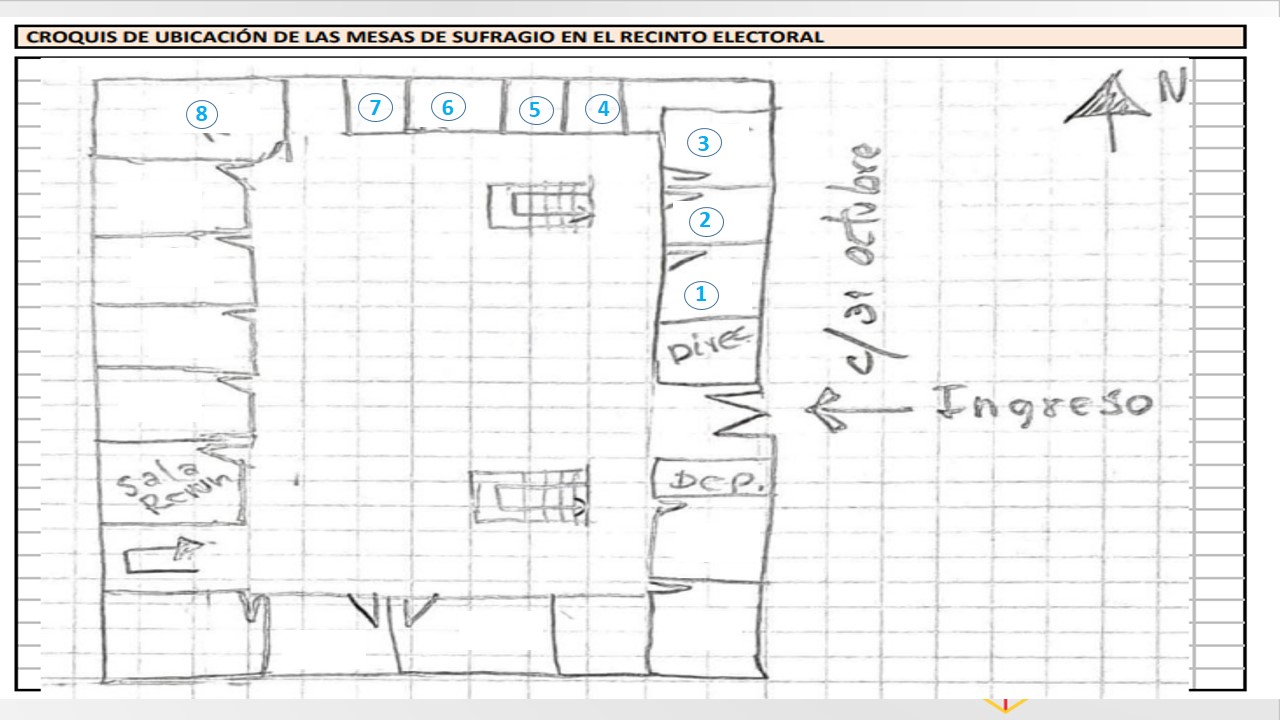 CROQUIS DE UBICACIÓN DE LAS MESAS DE SUFRAGIO EN EL RECINTO ELECTORAL
N
8
7
6
5
4
3
2
1
Direc
c/31 octubre
Ingreso
Sala
Reun
Dep.